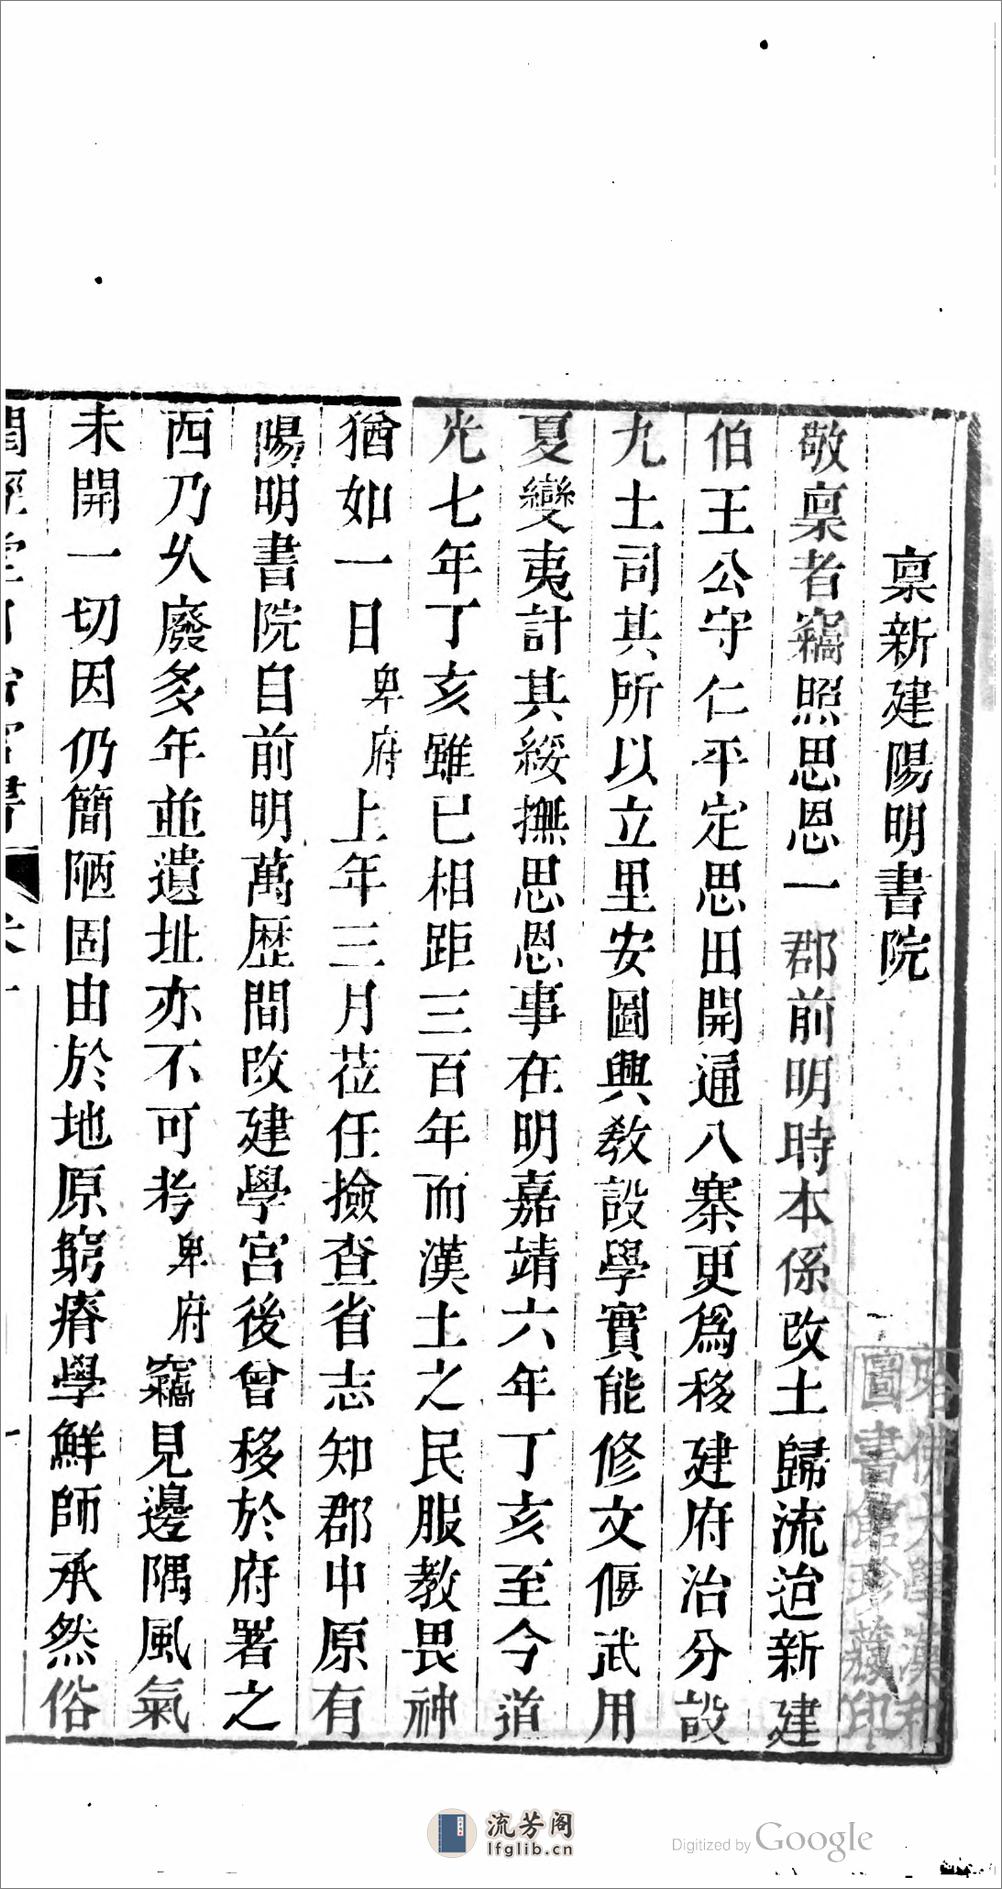 稟新建陽明書院
敬稟者竊照思恩一郡前明時本係改土歸流迨新建
伯王公守仁平定思田開通八寨更爲移建府治分設
九土司其所以立里安圖興教設學實能修文偃武用
夏變夷計其綏撫思恩事在明嘉靖六年丁亥至今道
光七年丁亥雖已相距三百年而漢土之民服教畏神
猶如一日卑府上年三月莅任撿查省志知郡中原有
陽明書院自前明萬歷間改建學宮後曾移於府署之
西乃乆廢多年並遺址亦不可考卑府竊見邊隅風氣
未開一切因仍簡陋固由於地原窮瘠學鮮師承然俗
哈佛大學漢和
圖書館珍藏印
流芳阁
lfglib.cn
Digitized by Google